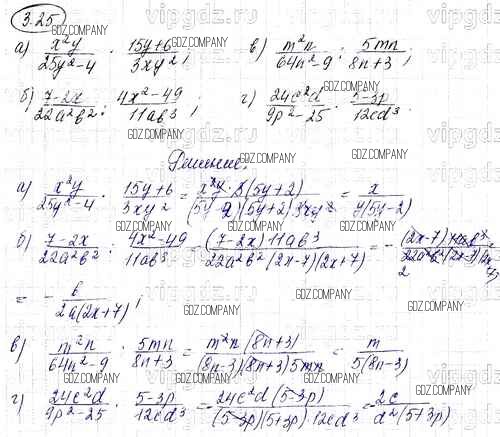 3.25
а) x²y/(25y²-4) · (15y+6)/(3xy²); в) m²n/(64n²-9) : 5mn/(8n+3);
б) (7-2x)/(22a²b²) : (4x²-49)/(11ab³); г) 24c²d/(9p²-25) · (5-3p)/(12cd³).
Решение:
а) x²y/(25y²-4) · (15y+6)/(3xy²) = x²y·3(5y+2)/((5y-2)(5y+2)3xy²) = x/(y(5y-2))
б) (7-2x)/(22a²b²) : (4x²-49)/(11ab³) = (7-2x)11ab³/(22a²b²(2x-7)(2x+7)) = - (2x-7)11ab³/(22a²b²(2x-7)(2x+7))
= - b/(2a(2x+7));
в) m²n/(64n²-9) : 5mn/(8n+3) = m²n(8n+3)/((8n-3)(8n+3)5mn) = m/(5(8n-3))
г) 24c²d/(9p²-25) · (5-3p)/(12cd³) = 24c²d(5-3p)/((5-3p)(5+3p)·12cd³) = 2c/(d²(5+3p))